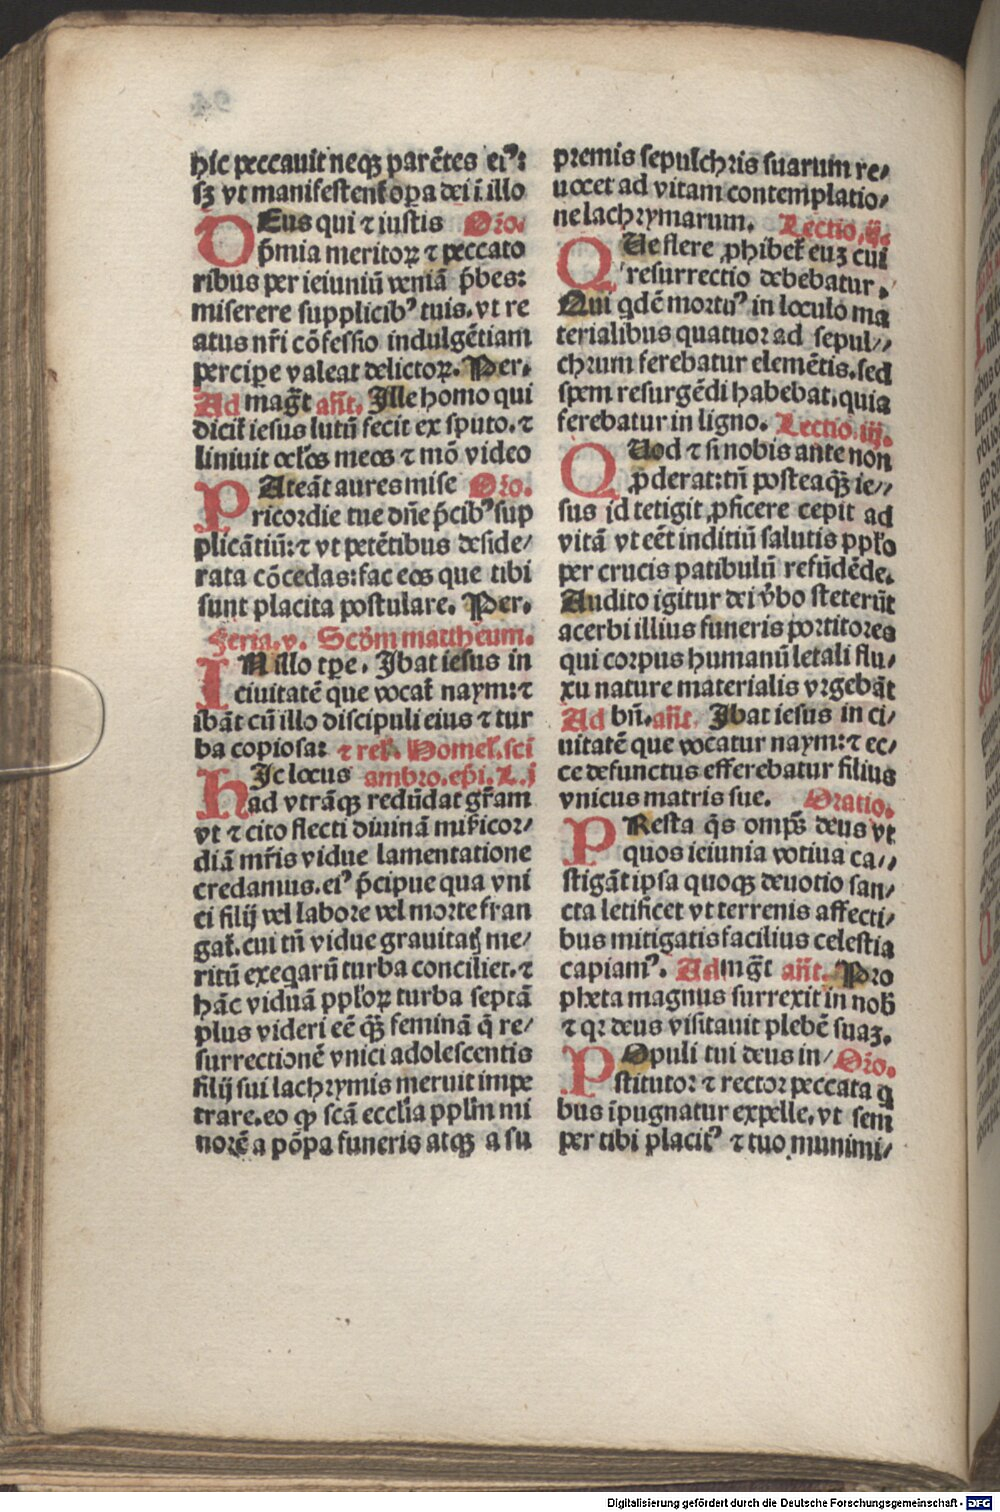 hic peccauit neqꝫ parẽtes eiꝰ:
sꝫ vt manifestent᷑ oꝑa dei ĩ illo
DEus qui ⁊ iustis Or̃o.
p̃mia meritoꝝ ⁊ peccato
ribus per ieiuniũ veniã p̃bes:
miserere supplicibꝰ tuis. vt re
atus nr̃i cõfessio indulgẽtiam
percipe valeat delictoꝝ. Per.
Ad mag̃t an̄t. Ille homo qui
dicit᷑ iesus lutũ fecit ex sputo. ⁊
liniuit ocl̓os meos ⁊ mõ video
PAteãt aures mise Or̃o.
ricordie tue dñe p̃cibꝰ sup
plicãtiũ: ⁊ vt petẽtibus deside/
rata cõcedas: fac eos que tibi
sunt placita postulare. Per.
Feria. v. Scd̓m mattheum.
IN illo tꝑe. Ibat iesus in
ciuitatẽ que vocat᷑ naym: ⁊
ibãt cũ illo discipuli eius ⁊ tur
ba copiosa: ⁊ rel̓. Homel̓. sci
HIc locus ambro. ep̃i. L. j
ad vtrãqꝫ redũdat gr̃am
vt ⁊ cito flecti diuinã mi̓icor/
diã mr̃is vidue lamentatione
credamus. eiꝰ p̃cipue qua vni
ci filij vel labore vel morte fran
gat᷑. cui tñ vidue grauitatꝭ me/
ritũ exeqarũ turba conciliet. ⁊
hãc viduã ppl̓oꝝ turba septã
plus videri eẽ qꝫ̃ feminã q̃ re/
surrectionẽ vnici adolescentis
filij sui lachrymis meruit impe
trare. eo ꝙ scã eccl̓ia ppl̓m mi
norẽ a põpa funeris atqꝫ a su
premis sepulchris suarum re/
uocet ad vitam contemplatio/
ne lachrymarum. Lectio. ij.
QUe flere ꝓhibet᷑ euꝫ cui
resurrectio debebatur.
Qui qdẽ mortuꝰ in loculo ma
terialibus quatuor ad sepul//
chrum ferebatur elemẽtis. sed
spem resurgẽdi habebat. quia
ferebatur in ligno. Lectio. iij.
QUod ⁊ si nobis ante non
ꝓderat: tñ posteaqꝫ̃ ie//
sus id tetigit ꝓficere cepit ad
vitã vt eẽt inditiũ salutis ppl̓o
per crucis patibulũ refũdẽde.
Audito igitur dei v̓bo steterũt
acerbi illius funeris portitores
qui corpus humanũ letali flu/
xu nature materialis vrgebãt
Ad bñ. an̄t. Ibat iesus in ci/
uitatẽ que vocatur naym: ⁊ ec/
ce defunctus efferebatur filius
vnicus matris sue. Oratio.
PResta q̃s omp̃s deus vt
quos ieiunia votiua ca//
stigãt ipsa quoqꝫ deuotio san/
cta letificet vt terrenis affecti/
bus mitigatis facilius celestia
capiamꝰ. Ad mg̃t an̄t. Pro
pheta magnus surrexit in nob̓
⁊ qꝛ deus visitauit plebẽ suaꝫ.
POpuli tui deus in/ Or̃o.
stitutor ⁊ rector peccata q
bus ĩpugnatur expelle. vt sem
per tibi placitꝰ ⁊ tuo munimi/
Digitalisierung gefördert durch die Deutsche Forschungsgemeinschaft - DFG